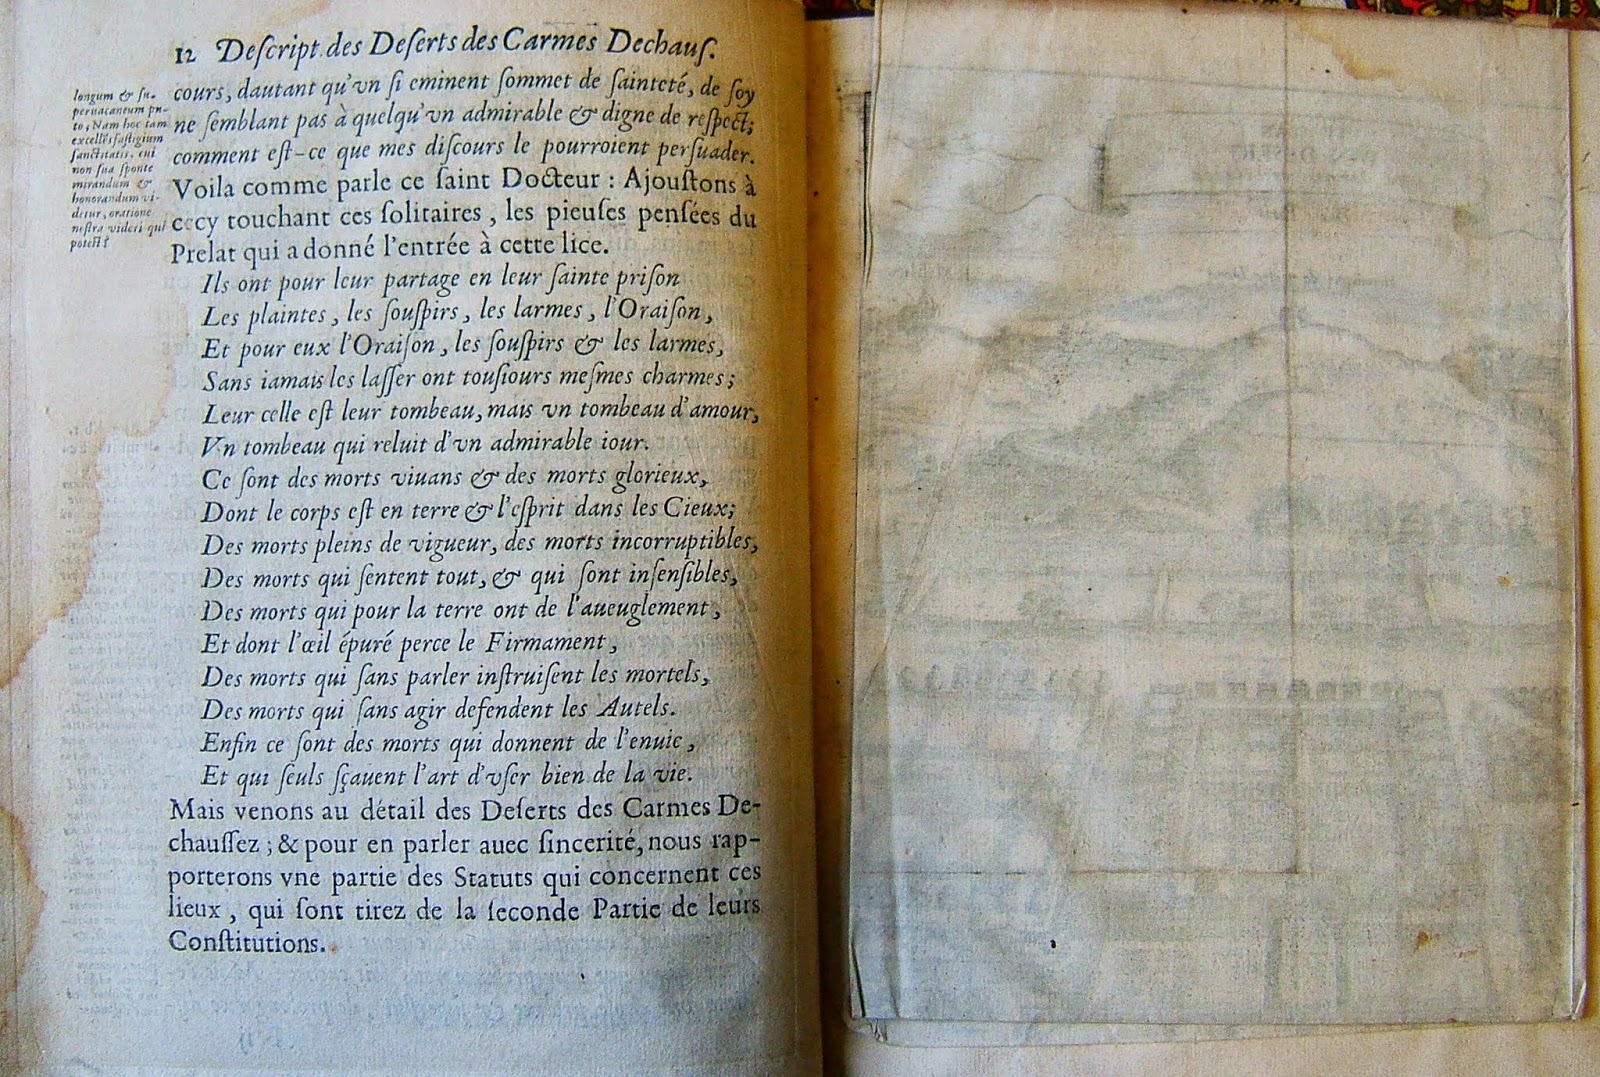 12 Deſcript. des Deſerts des Carmes Dechauſ.
longum & ſu-
peruacaneum pu-
to; Nam hoc tam
excellẽs faſtigium
ſanctitatis, cui
non ſua ſponte
mirandum &
honorandum vi-
detur, oratione
noſtra videri qui
poteſt?
cours, dautant qu'vn ſi eminent ſommet de ſainteté, de ſoy
ne ſemblant pas à quelqu'vn admirable & digne de reſpect;
comment eſt-ce que mes diſcours le pourroient perſuader.
Voila comme parle ce ſaint Docteur : Ajouſtons à
cecy touchant ces ſolitaires, les pieuſes penſées du
Prelat qui a donné l'entrée à cette lice.
Ils ont pour leur partage en leur ſainte priſon
Les plaintes, les ſouſpirs, les larmes, l'Oraiſon,
Et pour eux l'Oraiſon, les ſouſpirs & les larmes,
Sans iamais les laſſer ont touſiours meſmes charmes;
Leur celle eſt leur tombeau, mais vn tombeau d'amour,
Vn tombeau qui reluit d'vn admirable iour.
Ce ſont des morts viuans & des morts glorieux,
Dont le corps eſt en terre & l'eſprit dans les Cieux;
Des morts pleins de vigueur, des morts incorruptibles,
Des morts qui ſentent tout, & qui ſont inſenſibles,
Des morts qui pour la terre ont de l'aueuglement,
Et dont l'œil épuré perce le Firmament,
Des morts qui ſans parler inſtruiſent les mortels,
Des morts qui ſans agir defendent les Autels.
Enfin ce ſont des morts qui donnent de l'enuie,
Et qui ſeuls ſçauent l'art d'vſer bien de la vie.
Mais venons au détail des Deſerts des Carmes De-
chauſſez ; & pour en parler auec ſincerité, nous rap-
porterons vne partie des Statuts qui concernent ces
lieux, qui ſont tirez de la ſeconde Partie de leurs
Conſtitutions.